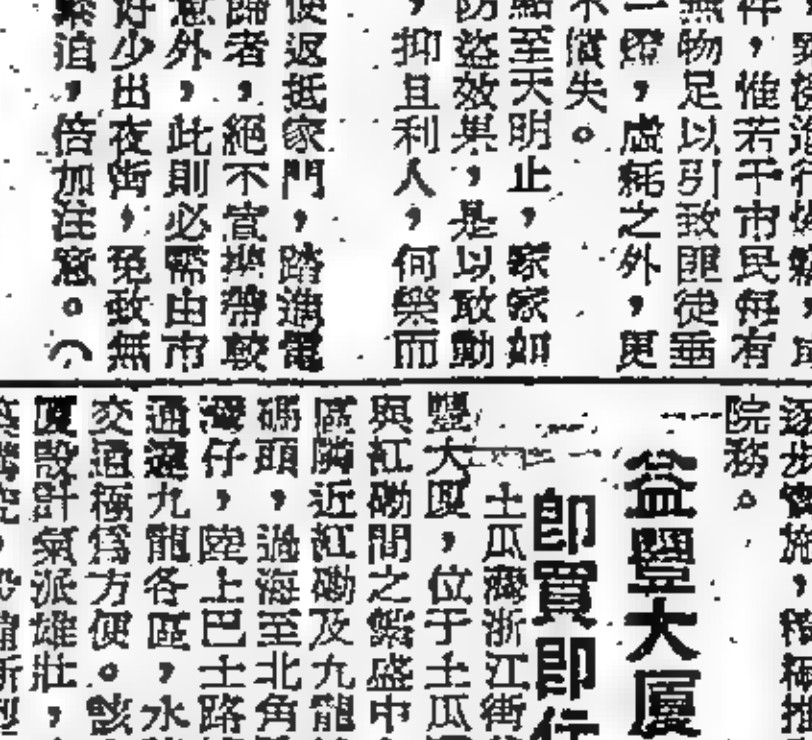 件，惟若干市民每有
無物足以引致匪徒垂
之外，更
失。
至天明止，家家如
防盜效果，是以敢動
，抑且利人，何樂而
返抵家門，踏進電
歸者，絕不宜攜帶較
意外，此則必需由市
好少出夜街，免致無
迫，倍加注意。（
院務。
益豐大廈
即買即住
土瓜灣浙江街
豐大厦，位于土瓜
與紅磡間之繁盛中
區隣近紅磡及九龍
碼頭，過海至北角
灣仔，陸上巴士路
通達九龍各區，水
交通極爲方便。該
厦設計氣派雄壯，